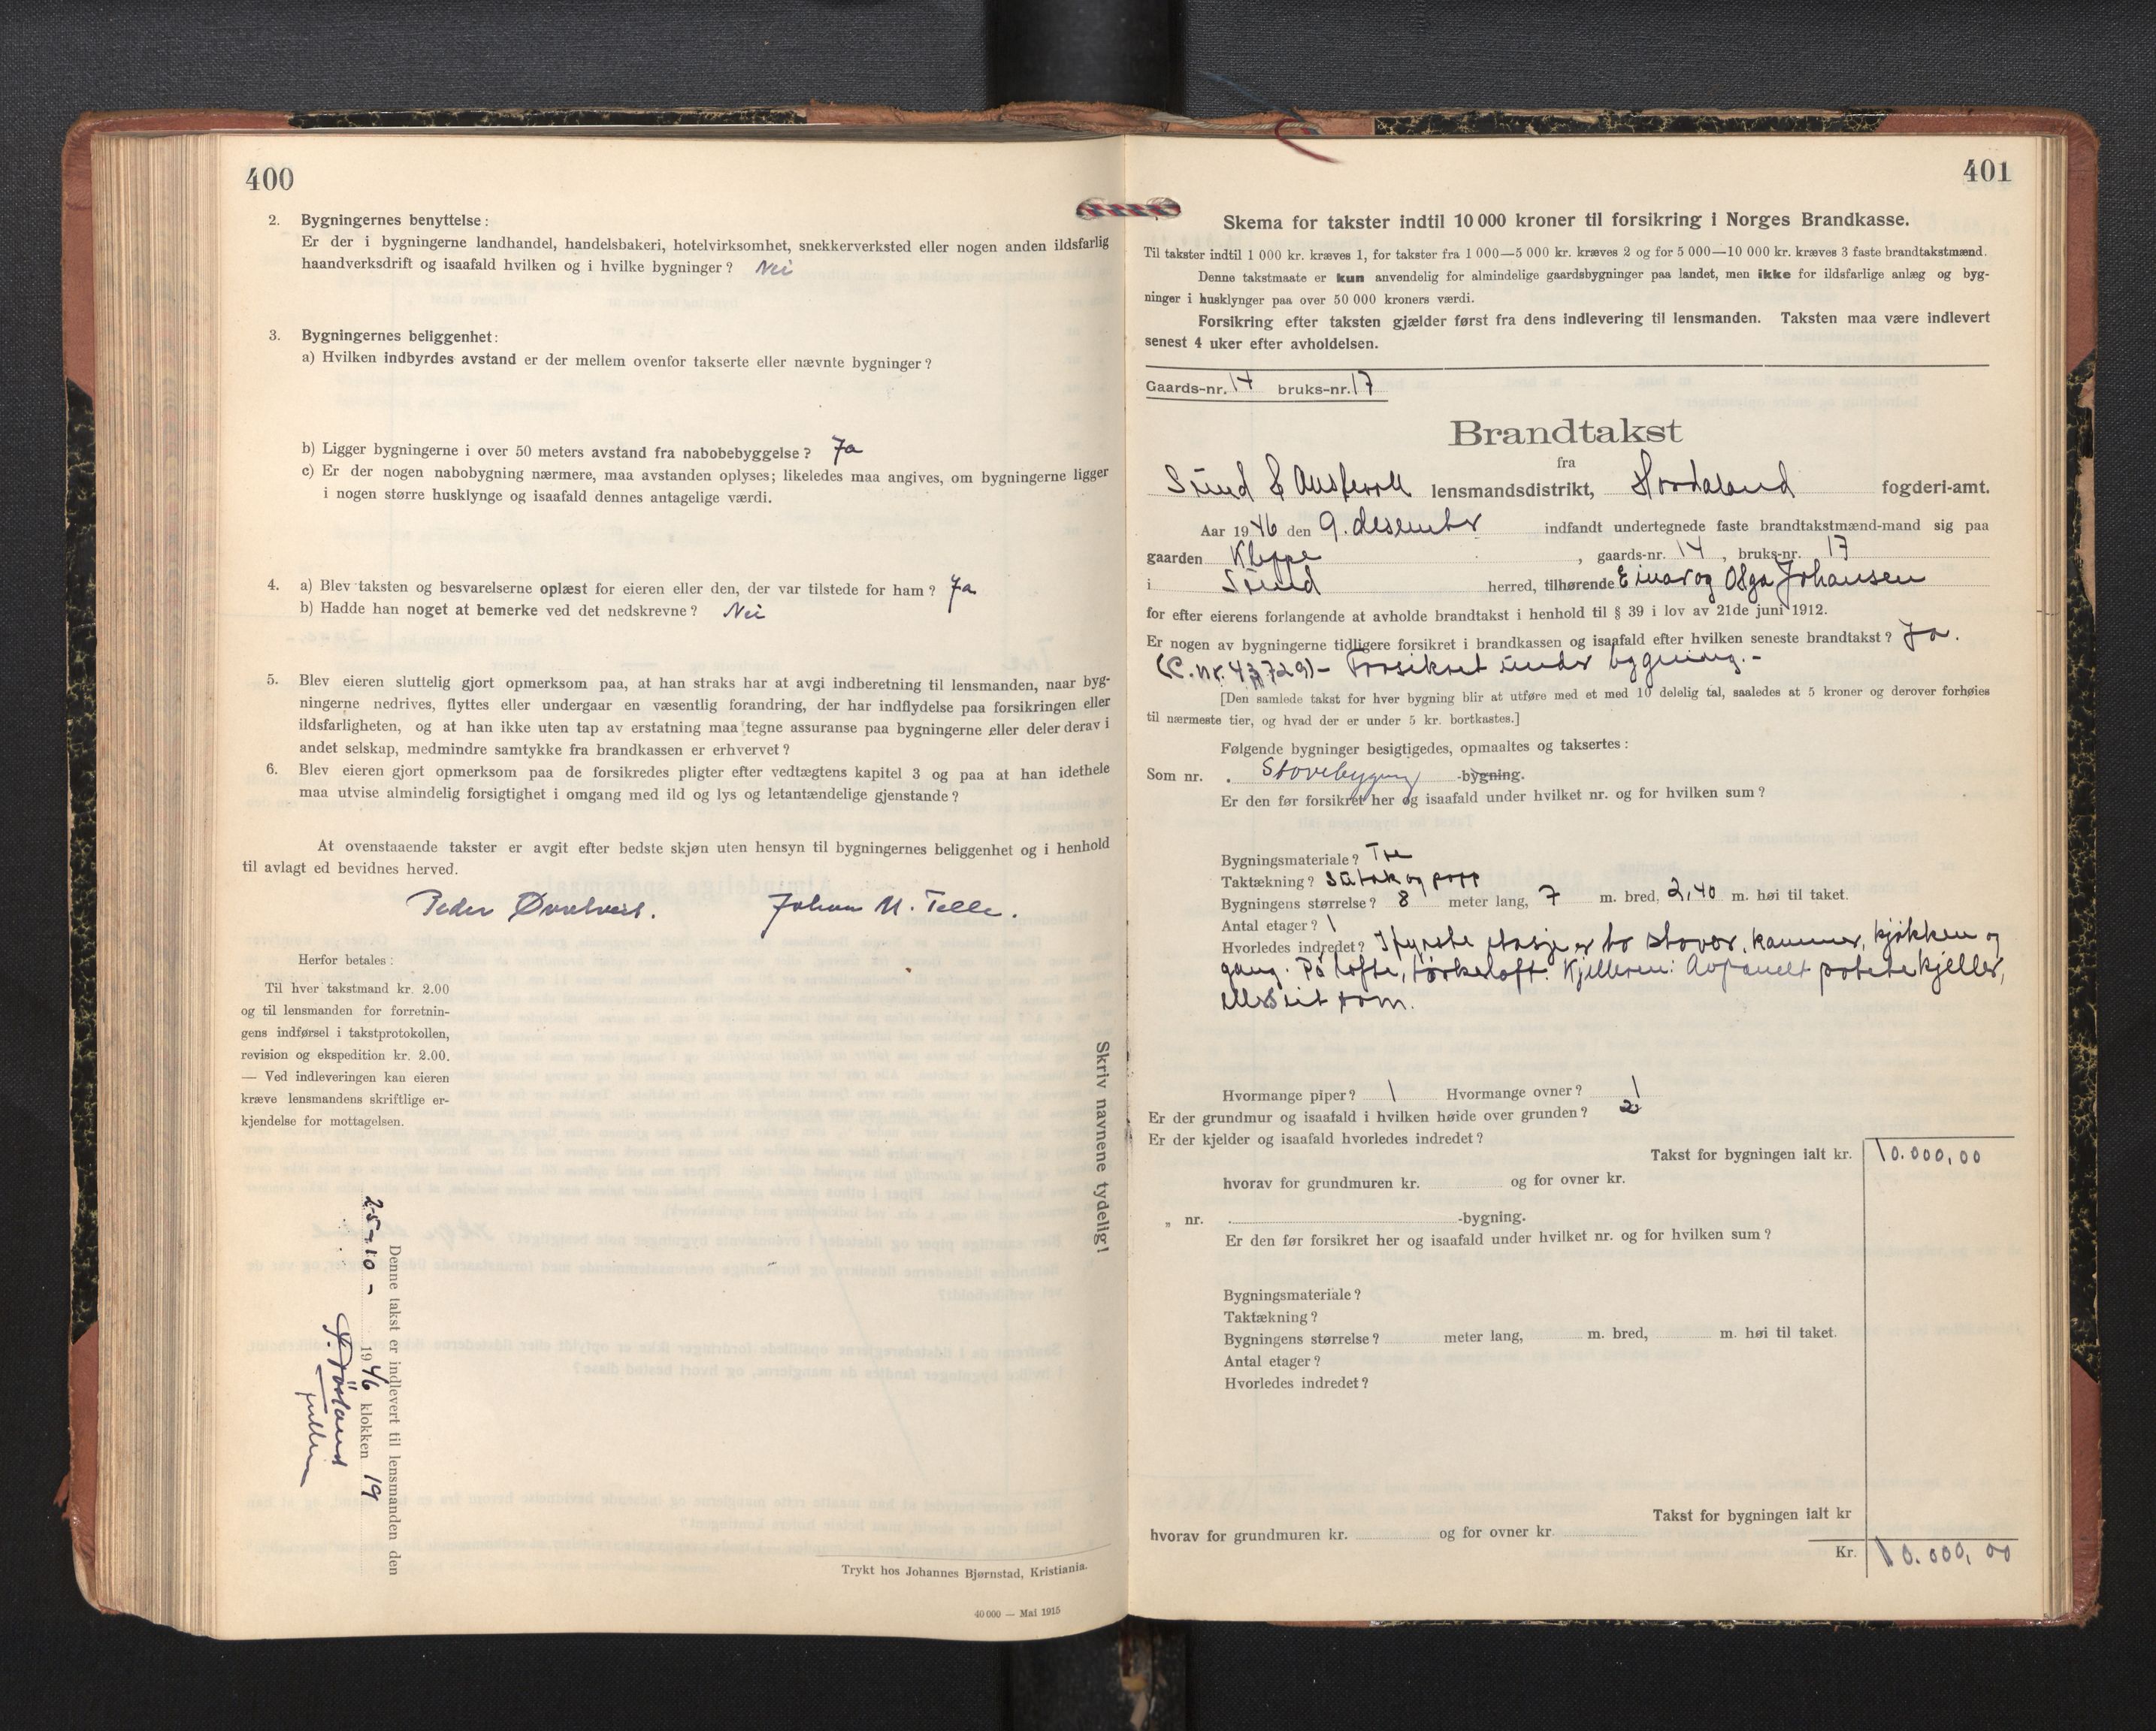 400
2. Bygningernes benyttelse:
Er der i bygningerne landhandel, handelsbakeri, hotelvirksomhet, snekkerverksted eller nogen anden ildsfarlig
haandverksdrift og isaafald hvilken og i hvilke bygninger? Nei
3. Bygningernes beliggenhet:
a) Hvilken indbyrdes avstand er der mellem ovenfor takserte eller nævnte bygninger?
b) Ligger bygningerne i over 50 meters avstand fra nabobebyggelse? Ja
c) Er der nogen nabobygning nærmere, maa avstanden oplyses; likeledes maa angives, om bygningerne ligger
i nogen større husklynge og isaafald dennes antagelige værdi.
4. a) Blev taksten og besvarelserne oplæst for eieren eller den, der var tilstede for ham? Ja
b) Hadde han noget at bemerke ved det nedskrevne? Nei
5. Blev eieren sluttelig gjort opmerksom paa, at han straks har at avgi indberetning til lensmanden, naar byg-
ningerne nedrives, flyttes eller undergaar en væsentlig forandring, der har indflydelse paa forsikringen eller
ildsfarligheten, og at han ikke uten tap av erstatning maa tegne assuranse paa bygningerne eller deler derav i
andet selskap, medmindre samtykke fra brandkassen er erhvervet?
6. Blev eieren gjort opmerksom paa de forsikredes pligter efter vedtægtens kapitel 3 og paa at han idethele
maa utvise almindelig forsigtighet i omgang med ild og lys og letantændelige gjenstande?
At ovenstaaende takster er avgit efter bedste skjøn uten hensyn til bygningernes beliggenhet og i henhold
til avlagt ed bevidnes herved.
Peder Øvretveit. Johan M. Telle.
Herfor betales:
Til hver takstmand kr. 2.00
og til lensmanden for forretnin-
gens indførsel i takstprotokollen,
revision og ekspedition kr. 2.00.
— Ved indleveringen kan eieren
kræve lensmandens skriftlige er-
kjendelse for mottagelsen.
Skriv navnene tydelig!
Denne takst er indlevert til lensmanden den
25-10- 1946 klokken 19
Trykt hos Johannes Bjørnstad, Kristiania.
40 000 — Mai 1915
401
Skema for takster indtil 10 000 kroner til forsikring i Norges Brandkasse.
Til takster indtil 1 000 kr. kræves 1, for takster fra 1 000—5 000 kr. kræves 2 og for 5 000—10 000 kr. kræves 3 faste brandtakstmænd.
Denne takstmaate er kun anvendelig for almindelige gaardsbygninger paa landet, men ikke for ildsfarlige anlæg og byg-
ninger i husklynger paa over 50 000 kroners værdi.
Forsikring efter taksten gjælder først fra dens indlevering til lensmanden. Taksten maa være indlevert
senest 4 uker efter avholdelsen.
Gaards-nr. 14 bruks-nr. 17
Brandtakst
fra
Sund & Austevoll lensmandsdistrikt, Hordaland fogderi-amt.
Aar 1946 den 9. desember indfandt undertegnede faste brandtakstmænd-mand sig paa
gaarden Kleppe, gaards-nr. 14, bruks-nr. 17
i Sund herred, tilhørende Einar og Olga Johansen
for efter eierens forlangende at avholde brandtakst i henhold til § 39 i lov av 21de juni 1912.
Er nogen av bygningerne tidligere forsikret i brandkassen og isaafald efter hvilken seneste brandtakst? Ja.
(C. nr. 43729) – Forsikret under bygning. –
[Den samlede takst for hver bygning blir at utføre med et med 10 delelig tal, saaledes at 5 kroner og derover forhøies
til nærmeste tier, og hvad der er under 5 kr. bortkastes.]
Følgende bygninger besigtigedes, opmaaltes og taksertes:
Som nr. . Stovebygning -bygning.
Er den før forsikret her og isaafald under hvilket nr. og for hvilken sum?
Bygningsmateriale? Tre
Taktækning? Sutak og papp
Bygningens størrelse? 8 meter lang, 7 m. bred, 2,40 m. høi til taket.
Antal etager? 1
Hvorledes indredet? I fyrste etasje er to stover, kammer, kjøkken og
gang. På loftet, tørkeloft. Kjelleren: Avpanelt potetekjeller,
ellers eit rom.
Hvormange piper? 1 Hvormange ovner? 1
Er der grundmur og isaafald i hvilken høide over grunden? 2
Er der kjelder og isaafald hvorledes indredet?
Takst for bygningen ialt kr. 10.000,00
hvorav for grundmuren kr. og for ovner kr.
„ nr. . -bygning.
Er den før forsikret her og isaafald under hvilket nr. og for hvilken sum?
Bygningsmateriale?
Taktækning?
Bygningens størrelse? meter lang, m. bred, m. høi til taket.
Antal etager?
Hvorledes indredet?
Takst for bygningen ialt kr
hvorav for grundmuren kr. og for ovner kr.
Kr. 10.000,00